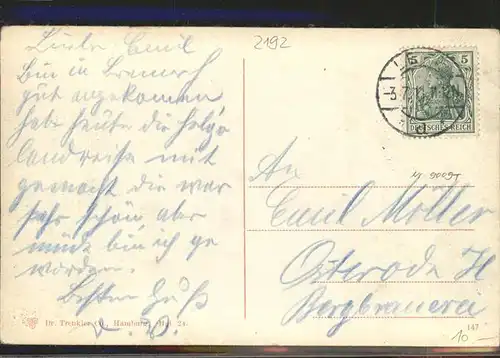 2192
Lieber Emil
bin in
gut angekommen
habe heute die Helgo
landreise mit
gemacht die war
sehr schön aber
müde bin ich ge
worden.
Besten Gruß
5 5
3.7.
DEUTSCHES REICH
An
Emil Möller
Osterode H
Bergbrauerei
Dr. Trenkler Co., Hamburg
147
10 -